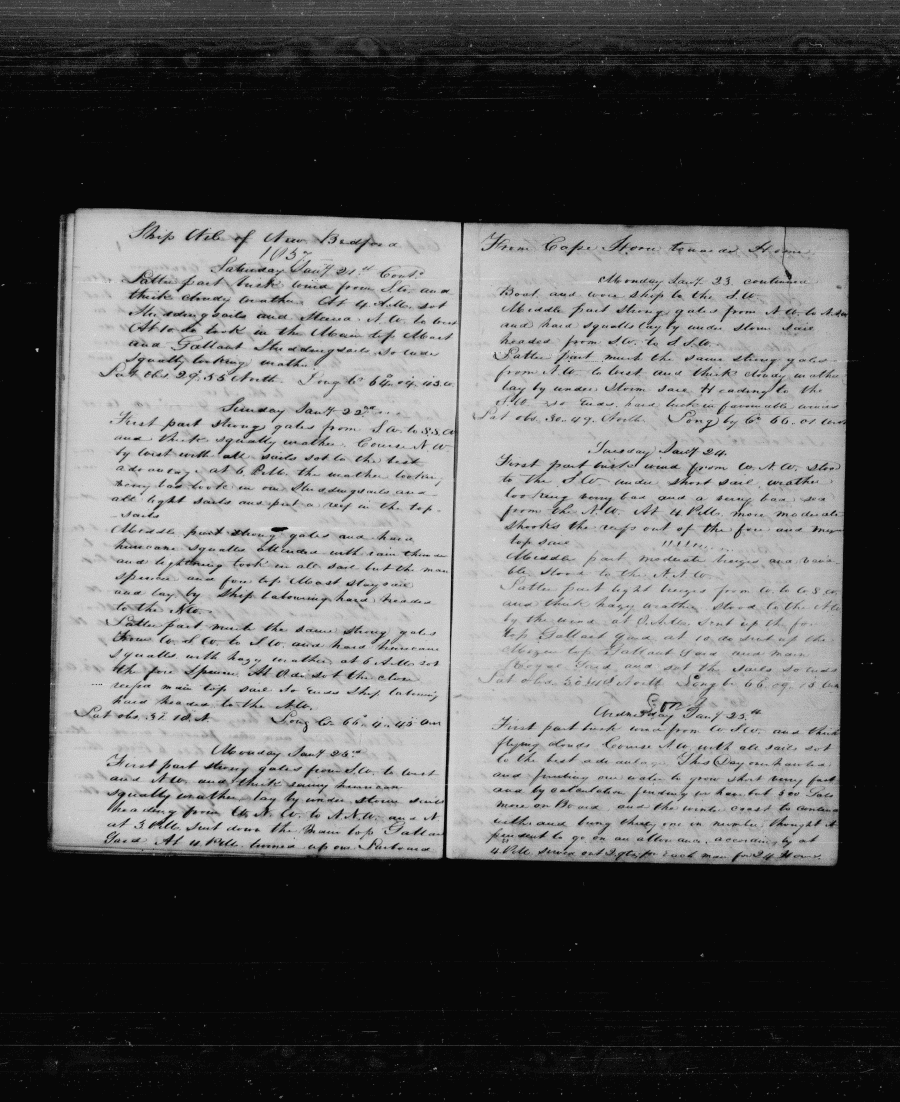 Ship Nile of New Bedford
1837
Saturday Jany 21st Cont.
Latter part brisk wind from S.W. and
thick cloudy weather At 4 A.M. set
Studdingsails and Steered N.W. by West
At 10 do took in the Main top Mast
and Gallant Studdingsails So Ends
squally looking weather
Lat obs 29.55 North Long by 64.09.45 W.
Sunday Jany 22nd
First part strong gales from S.W. to S.S.W.
and thick squally weather Course N.W.
by West with all sails set to the best
advantage at 6 P.M. the weather looking
very bad took in our Studdingsails and
all light sails and put a reef in the top
sails
Middle part strong gales and hard
hurricane squalls attended with rain thunder
and lightning took in all sail but the main
spencer and fore top Mast Staysail
and lay by Ship labouring hard headed
to the N.W.
Latter part much the same strong gales
from W.S.W. to S.W. and hard hurricane
squalls with hazy weather at 6 A.M. set
the fore Spencer At 9 do set the close
reefed main top sail So Ends Ship labouring
hard headed to the N.W.
Lat obs. 31.10 N Long by 66.4.45 West
Monday Jany 23rd
First part strong gales from S.W. to West
and N.W. and thick hurricane
squally weather lay by under storm sails
heading from W.N.W. to N.N.W. and N
at 3 P.M. Sent down the Main top Gallant
Yard At 4 P.M. turned up our Larboard
From Cape Horn towards Home
Monday Jany 23 continued
Boat and wore Ship to the S.W.
Middle part strong gales from N.W. to
and hard squalls lay by under storm sail
headed from S.W. to S.S.W.
Latter part much the same strong gales
from N.W. to West and thick cloudy weather
lay by under Storm sail Heading to the
S.W. So Ends, hard luck in favorable winds
Lat obs. 30.49 North Long by 66.01 West
Tuesday Jany 24
First part brisk wind from W.N.W. Stood
to the S.W. under short sail weather
looking very bad and a very bad sea
from the N.W. At 4 P.M. more moderate
shook the reefs out of the fore and
top sail
Middle part moderate breezes and varia
ble stood to the N.N.W.
Latter part light breezes from W. to W.S.W.
and thick hazy weather stood to the N.W.
by the wind at 8 A.M. sent up the fore
top Gallant Yard at 10 do sent up the
Mizen top Gallant Yard and main
Royal Yard and set the sails So Ends
Lat obs. North Long by 66.09.15 West
Wednesday Jany 25th
First part brisk wind from W.S.W. and thick
flying clouds Course N.W. with all sails set
to the best advantage This Day overhauled
and finding our water to grow short very fast
and by calculation finding we have but 300 Gals
more on Board and the winter coast to contend
with and being thirty one in number thought it
prudent to go on an allowance accordingly at
4 P.M. served out 2 qts for each man for 24 Hours